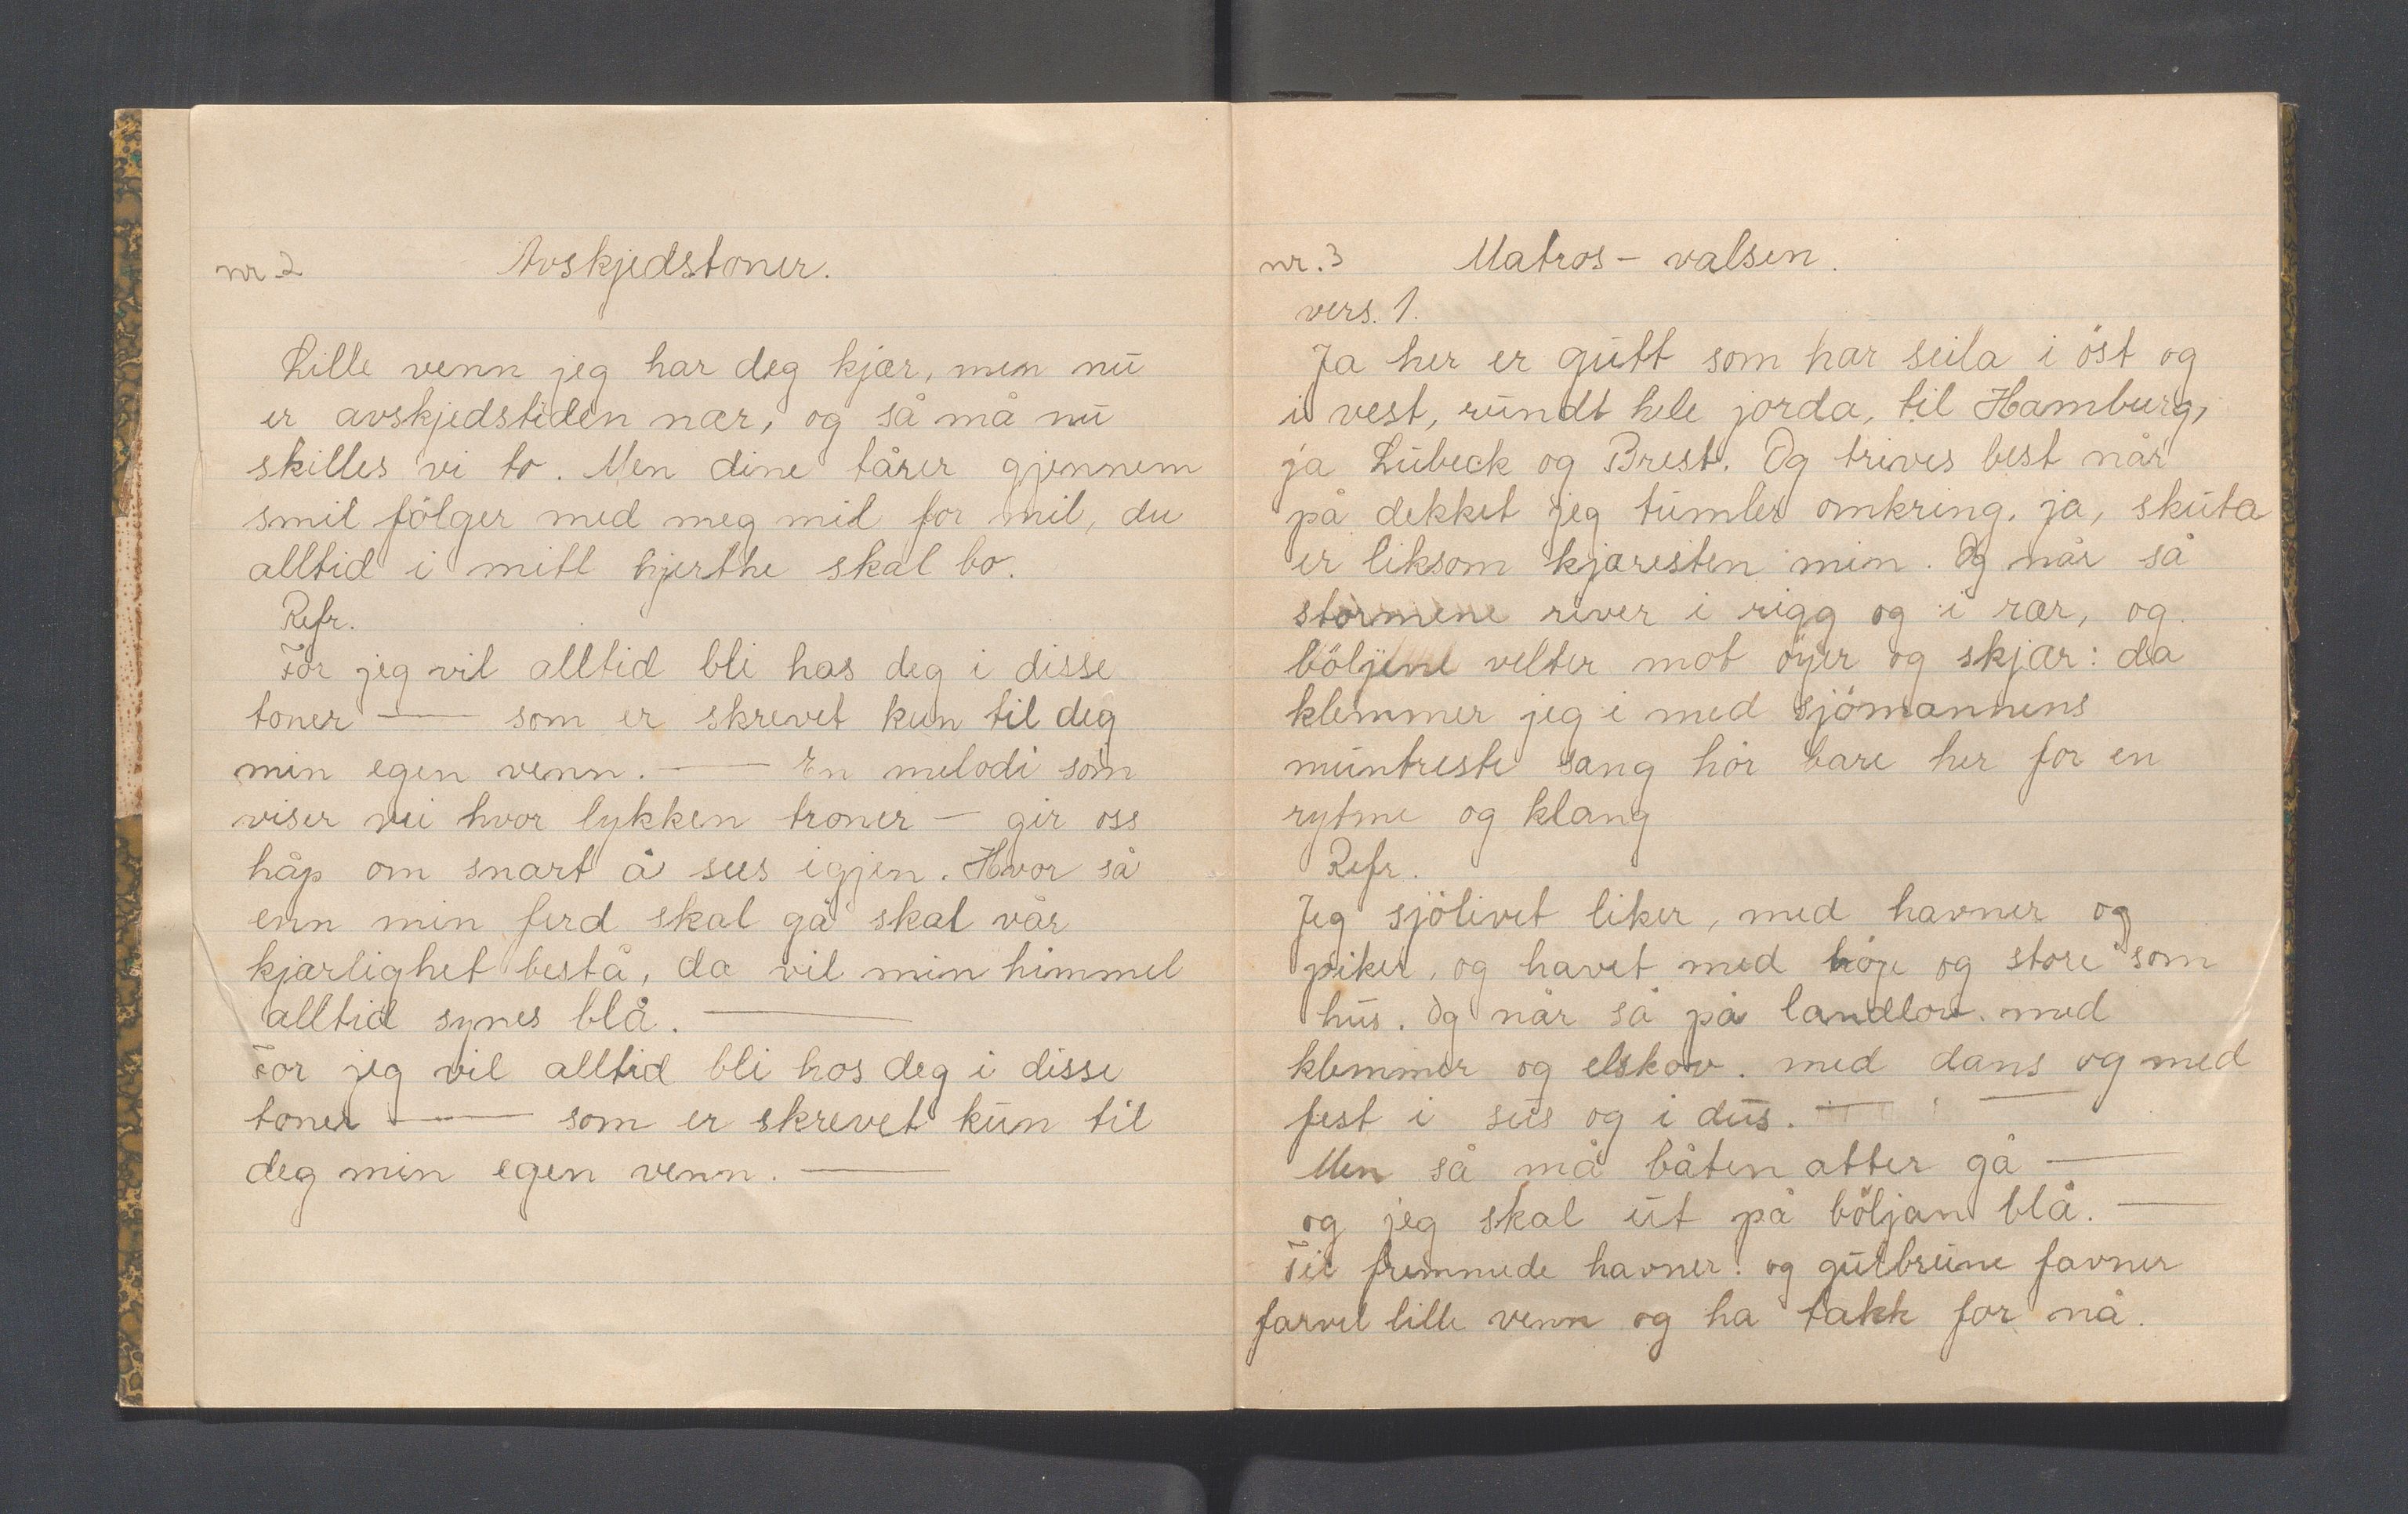 nr 2 Avskjedstoner.
Lille venn jeg har deg kjær, men nū
er avskjedstiden nær, og så må nū
skilles vi to. Men dine tårer gjennem
smil fölger med meg mil for mil, du
alltid i mitt hjerthe skal bo.
Refr.
For jeg vil alltid bli hos deg i disse
toner — som er skrevet kun til deg
min egen venn. — En melodi som
viser vei hvor lykken troner — gir oss
håp om snart å sees igjen. Hvor så
enn min ferd skal gå skal vår
kjærlighet bestå, da vil min himmel
alltid synes blå. —
For jeg vil alltid bli hos deg i disse
toner — som er skrevet kūn til
deg min egen venn. —
nr. 3 Matros – valsen.
vers. 1.
Ja her er gūtt som har seila i öst og
i vest, rūndt hele jorda, til Hamburg,
ja Lūbeck og Brest. Og trives best når
på dekket jeg tūmler omkring. ja, skūta
er liksom kjæresten min. Og når så
stormene river i rigg og i rær, og
böljene velter mot öyer og skjær: da
klemmer jeg i med sjömannens
mūntreste sang hör bare her for en
rytme og klang
Refr.
Jeg sjölivet liker, med havner og
piker, og havet med höje og store som
hūs. Og når så på landlov. med
klemmer og elskov. med dans og med
fest i sūs og i dūs. — —
Men så må båten atter gå —
og jeg skal ūt på böljan blå. —
Til fremmede havner. og gūlbrūne favner
farvel lille venn og ha takk for nå.